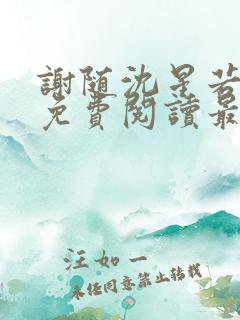 謝随沈星若
免費閱讀最
汪如一
未经同意禁止转载